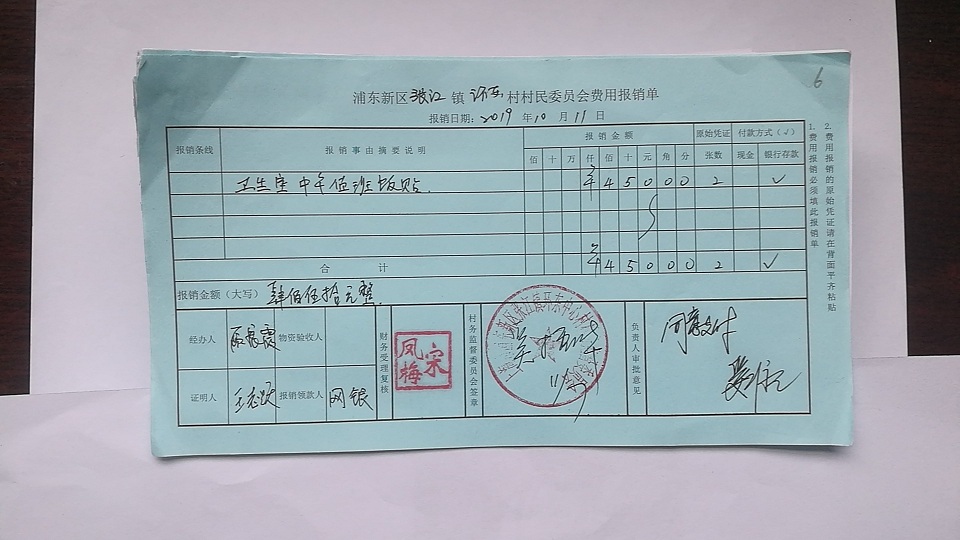 6
浦东新区张江镇环东村村民委员会费用报销单
报销日期：2019年10月11日
报销条线 报销事由摘要说明 报销金额 原始凭证 付款方式（√）
佰 十 万 仟 佰 十 元 角 分 张数 现金 银行存款
卫生室中午值班饭贴 ¥ 4 5 0 0 0 2 √
合计 ¥ 4 5 0 0 0 2 √
报销金额（大写） 肆佰伍拾元整
经办人 物资验收人
证明人 报销领款人 网银
财务受理复核
宋凤梅
村务监督委员会签章
负责人审批意见
同意支付
1.费用报销必须填此报销单
2.费用报销的原始凭证请在背面平齐粘贴